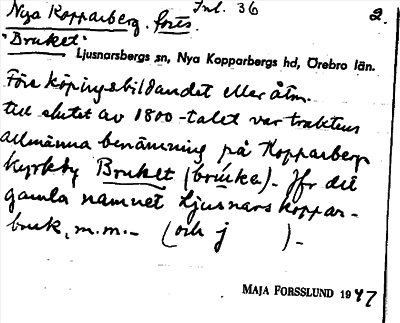 Nya Kopparberg. forts. Inl. 36 2.
"Bruket"
Ljusnarsbergs sn, Nya Kopparbergs hd, Örebro län.
Före köpingsbildandet eller åtm.
till slutet av 1800-talet var traktens
allmänna benämning på Kopparbergs
kyrkby Bruket (brúke). Jfr det
gamla namnet Ljusnars koppar-
bruk, m.m.- (och j )-
MAJA FORSSLUND 1947